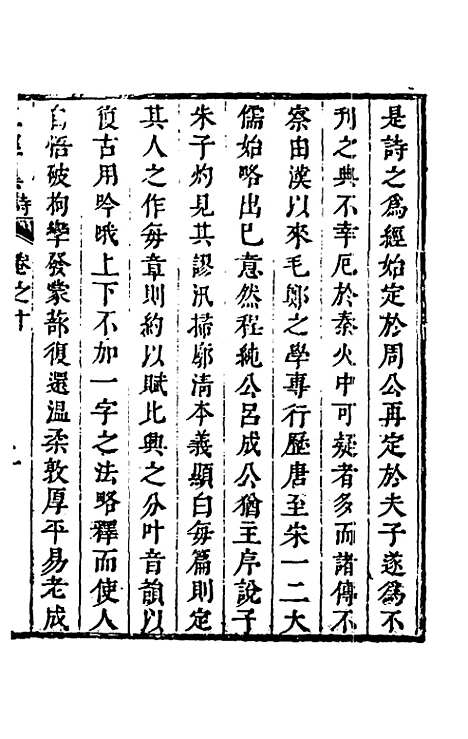 是詩之爲經始定於周公再定於夫子遂爲不
刊之典不幸厄於秦火中可疑者多而諸傳不
察由漢以來毛鄭之學專行歷唐至宋一二大
儒始略出己意然程純公呂成公猶主序說子
朱子灼見其謬汛掃廓清本義顯白每篇則定
其人之作每章則約以賦比興之分叶音韻以
復古用吟哦上下不加一字之法略釋而使人
自悟破拘攣發蒙蔀復還温柔敦厚平易老成
詩
卷之十